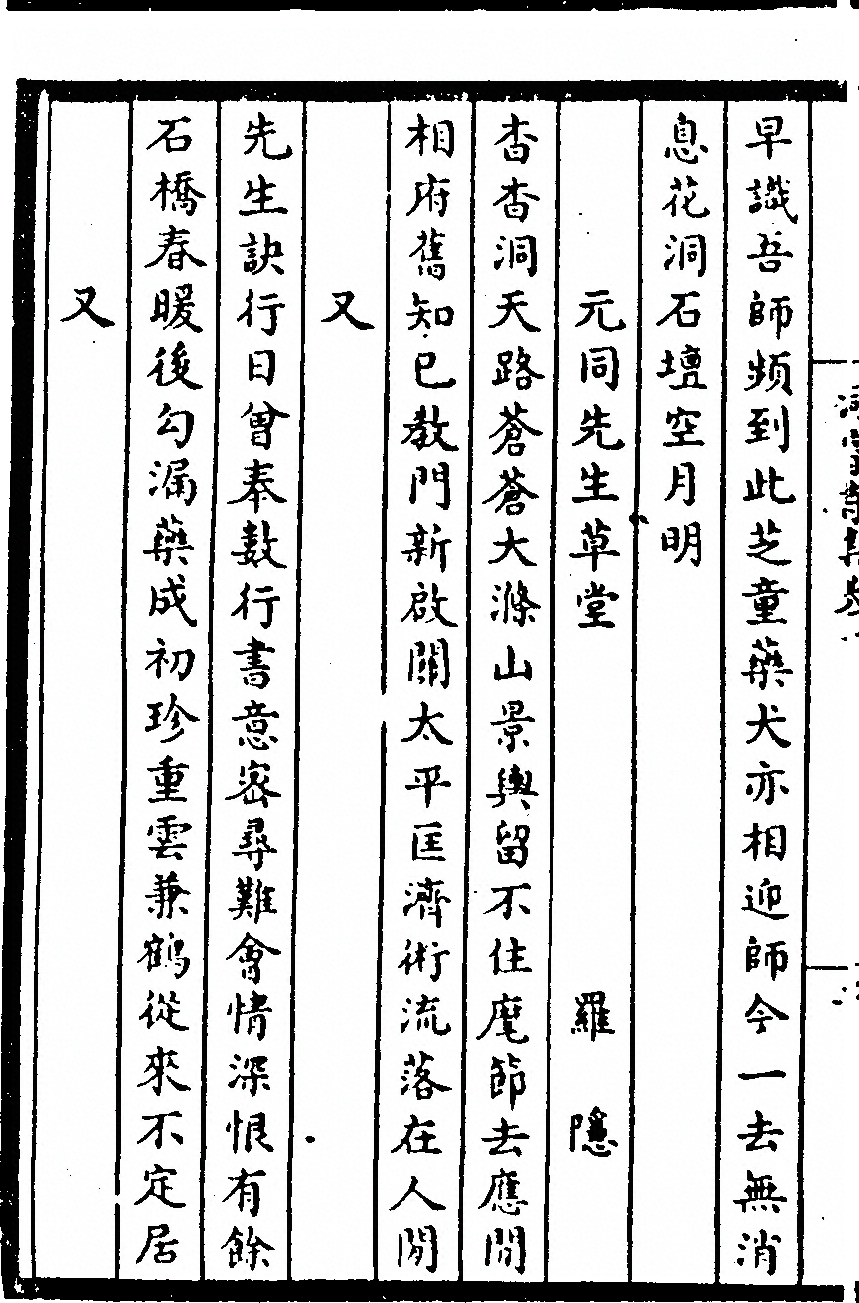 早識吾師頻到此芝童藥犬亦相迎師今一去無消
息花洞石壇空月明
元同先生草堂　羅隱
杳杳洞天路蒼蒼大滌山景輿留不住麾節去應閒
相府舊知已教門新啟關太平匡濟術流落在人閒
又
先生訣行日曾奉數行書意密尋難會情深恨有餘
石橋春暖後勾漏藥成初珍重雲兼鶴從來不定居
又